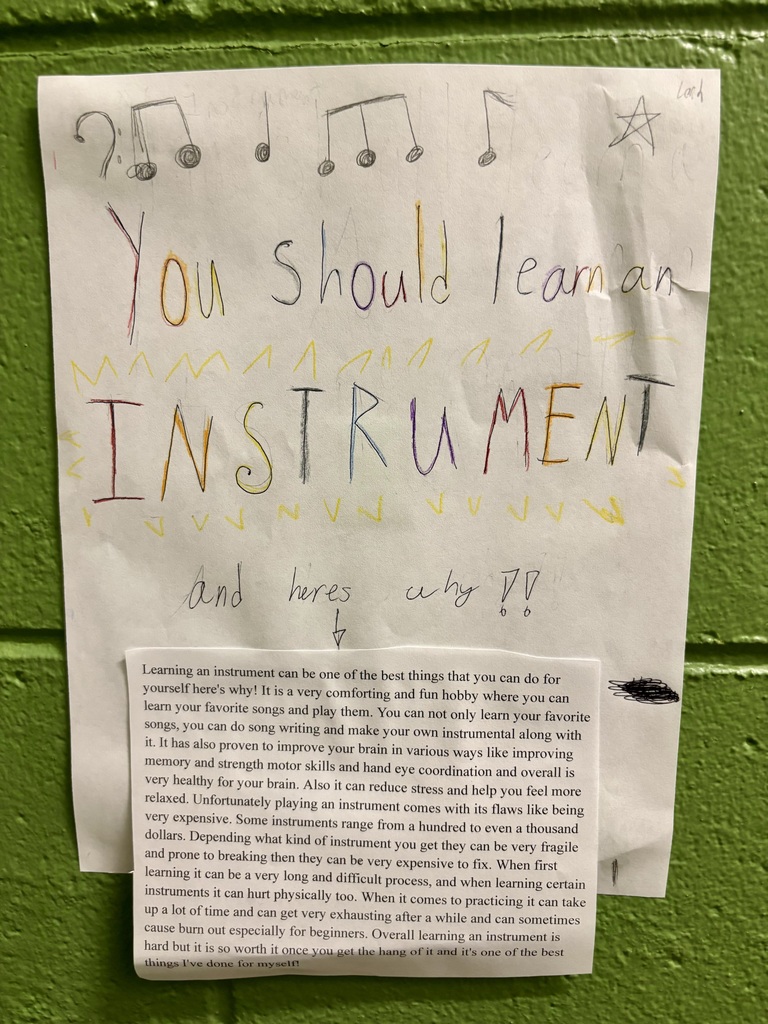 You should learn an
INSTRUMENT
and heres why!!
Learning an instrument can be one of the best things that you can do for
yourself here's why! It is a very comforting and fun hobby where you can
learn your favorite songs and play them. You can not only learn your favorite
songs, you can do song writing and make your own instrumental along with
it. It has also proven to improve your brain in various ways like improving
memory and strength motor skills and hand eye coordination and overall is
very healthy for your brain. Also it can reduce stress and help you feel more
relaxed. Unfortunately playing an instrument comes with its flaws like being
very expensive. Some instruments range from a hundred to even a thousand
dollars. Depending what kind of instrument you get they can be very fragile
and prone to breaking then they can be very expensive to fix. When first
learning it can be a very long and difficult process, and when learning certain
instruments it can hurt physically too. When it comes to practicing it can take
up a lot of time and can get very exhausting after a while and can sometimes
cause burn out especially for beginners. Overall learning an instrument is
hard but it is so worth it once you get the hang of it and it's one of the best
things I've done for myself!